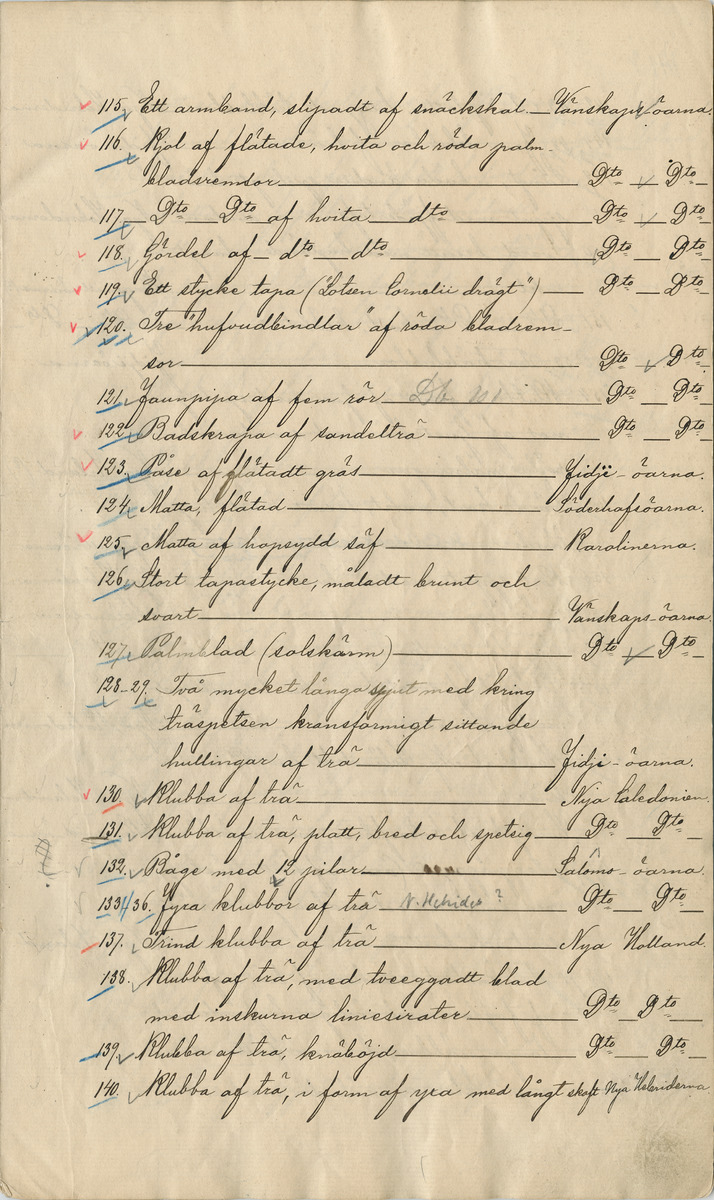 115. Ett armband, slipadt af snäckskal. — Vänskaps-öarna.
116. Kjol af flätade, hvita och röda palm-
bladsremsor — Dto — Dto
117. — Dto — Dto af hvita — dto — Dto — Dto
118. Gördel af — dto — dto — Dto — Dto
119. Ett stycke tapa ("Lotsen Cornelii drägt") — Dto — Dto
120. Tre "hufvudbindlar" af röda bladrem-
sor — Dto — Dto
121. Faunpipa af fem rör — Dto — Dto
122. Badskrapa af sandelträ — Dto — Dto
123. Påse af flätadt gräs — Fidji-öarna.
124. Matta, flätad — Söderhafsöarna.
125. Matta af hopsydd säf — Karolinerna.
126. Stort tapastycke, måladt brunt och
svart — Vänskaps-öarna.
127. Palmblad (solskärm) — Dto — Dto
128-29. Två mycket långa spjut med kring
träspetsen kransformigt sittande
hullingar af trä — Fidji-öarna.
130. Klubba af trä — Nya Caledonien.
131. Klubba af trä, platt, bred och spetsig — Dto — Dto
132. Båge med 12 pilar — Salomo-öarna.
133/36. Fyra klubbor af trä N. Hebrides ? — Dto — Dto
137. Trind klubba af trä — Nya Holland.
138. Klubba af trä, med tveeggadt blad
med inskurna liniesirater — Dto — Dto
139. Klubba af trä, knäböjd — Dto — Dto
140. Klubba af trä, i form af yxa med långt skaft Nya Hebriderna.